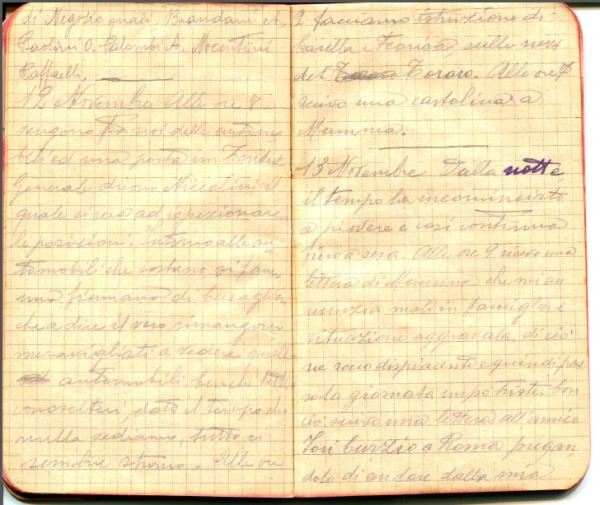 di Negozio quasi. Brandani et
Paolini O. Colombi A. Nocentini
Raffaelli,
12 Novembre Alle ore 8
vengono fra noi delle automo
bili ed una porta un Tenente
Generale
quale si reca ad ispezionare
le posizioni. Intorno alle au
tomobili che sostano vi fanno
una fiumana di bersaglieri
che a dire il vero rimangono
meravigliati a vedere quelle
automobili benché tutti
conoscitori, dato il tempo che
nulla vediamo, tutto ci
sembra strano. Alle ore
2 facciamo istruzione di
barella e teorica, sulle nevi
del Toraro. Alle ore 7
scrivo una cartolina a
Mamma.
13 Novembre Dalla notte
il tempo ha incominciato
a piovere e così continua
fino a sera. Alle ore 9 ricevo una
lettera di Mamma che mi an
nunzia mali in famiglia e
situazione aggravata, di ciò
ne sono dispiacente e quindi pas
so la giornata un po triste. Con
ciò scrivo una lettera all'amico
Tosi Curzio a Roma pregan
dolo di andare dalla mia